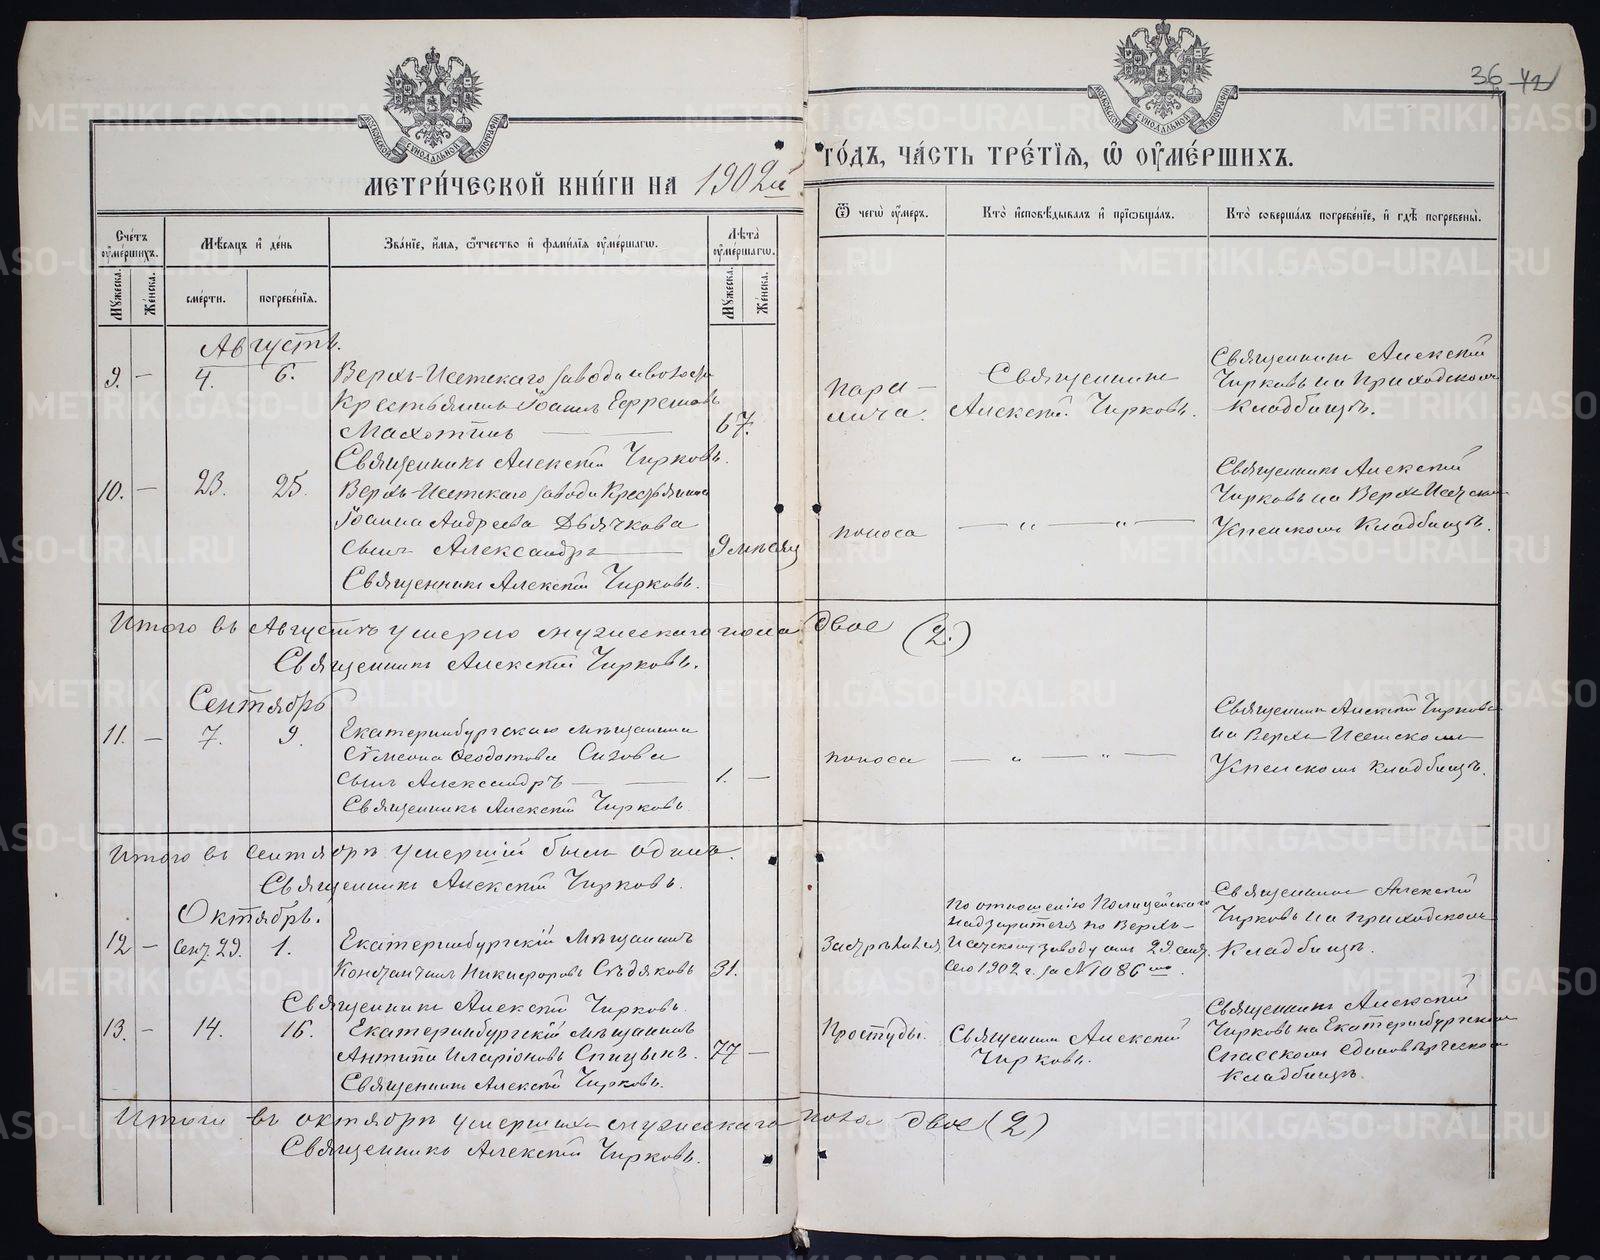 36 42
МЕТРИ́ЧЕСКОЙ КНИ́ГИ НА 1902й
ГО́ДЪ, ЧА́СТЬ ТРЕ́ТІѦ, Ѡ҆ ОУ҆МЕ́РШИХЪ.
Сче́тъ оу҆ме́ршихъ.
Мꙋ́жеска.
Же́нска.
Мѣ́сяцъ и҆ де́нь
сме́рти.
погребе́нїя.
Зва́нїе, и҆́мя, ѻ҆́тчество и҆ фами́лїя оу҆ме́ршагѡ.
Лѣ́та оу҆ме́ршагѡ.
Мꙋ́жеска.
Же́нска.
Ѿ чегѡ̀ оу҆́меръ.
Кто̀ и҆сповѣ́дывалъ и҆ прїѡбща́лъ.
Кто̀ соверша́лъ погребе́нїе, и҆ гдѣ̀ погребены̀.
Августъ.
9. — 4. 6.
Верхъ-Исетскаго завода и волости
Крестьянинъ Іоаннъ Ефремовъ
Махотинъ — 67.
Священникъ Алексѣй Чирковъ.
пара-
лича.
Священникъ
Алексѣй Чирковъ.
Священникъ Алексѣй
Чирковъ на Приходскомъ
Кладбищѣ.
10. — 23. 25.
Верхъ-Исетскаго завода Крестьянина
Іоанна Андреева Дьячкова
сынъ Александръ — 9 мѣсяц
Священникъ Алексѣй Чирковъ.
поноса
— „ — „ —
Священникъ Алексѣй
Чирковъ на Верхъ-Исетском
Успенскомъ Кладбищѣ.
Итого въ Августѣ умерло мужескаго пола двое (2.)
Священникъ Алексѣй Чирковъ.
Сентябрь
11. — 7. 9.
Екатеринбургскаго мѣщанина
Сѵмеона Ѳеодотова Сизова
сынъ Александръ — 1. —
Священникъ Алексѣй Чирковъ
поноса
— „ — „ —
Священникъ Алексѣй Чирковъ
на Верхъ-Исетскомъ
Успенскомъ Кладбищѣ.
Итого въ Сентябрѣ умершій былъ одинъ.
Священникъ Алексѣй Чирковъ.
Октябрь.
12 — Сент. 29. 1.
Екатеринбургскій Мѣщанинъ
Константинъ Никифоровъ Сѣдяковъ 31.
Священникъ Алексѣй Чирковъ.
Застрѣлился
По отношенію Полицейскаго
надзирателя по Верхъ-
Исетскому заводу отъ 29 сент.
сего 1902 г. за № 1086мъ.
Священникъ Алексѣй
Чирковъ на приходскомъ
Кладбищѣ.
13. — 14. 16.
Екатеринбургскій мѣщанинъ
Антипа Иларіоновъ Спицынъ. 77 —
Священникъ Алексѣй Чирковъ.
Простуды.
Священникъ Алексѣй
Чирковъ.
Священникъ Алексѣй
Чирковъ на Екатеринбургскомъ
Спасскомъ Единовѣрческомъ
Кладбищѣ.
Итого въ октябрѣ умершихъ мужескаго пола двое (2)
Священникъ Алексѣй Чирковъ.
METRIKI.GASO-URAL.RU